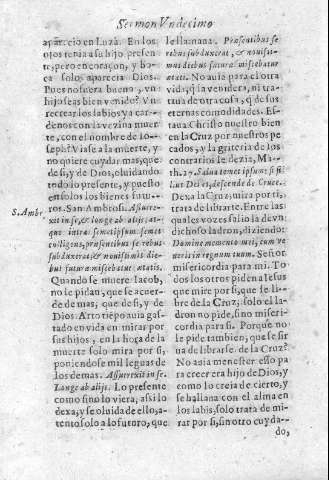 Sermon Vndecimo
aparecio en Luzà. En los
otros tenia a su hijo presen
te, pero en coraçon, y bo-
ca solo aparecia Dios.
Pues no fuera bueno, vn
hijo seas bien venido? Vn
recrear los labios, ya car-
denos con la vezina muer
te, con el nombre de Io-
seph? Vase a la muerte, y
no quiere cuydar mas, que
de si, y de Dios, oluidando
todo lo presente, y puesto
en solos los bienes futu-
S. Ambr.
ros. San Ambrosi. Assurrex-
it in se, & longe ab alijs, at-
que intra semetipsum semet
colligens, praesentibus se rebus
subduxerat, & nouissimis die
bus futura miscebatur aetatis.
Quando se muere Iacob,
no le pidan, que se acuer-
de de mas, que de si, y de
Dios. Arto tiẽpo auia gas-
tado en vida en mirar por
sus hijos, en la hora de la
muerte solo mira por si,
poniendose mil leguas de
los demas. Assurrexit in se.
Longe ab alijs. Lo presente
como sino lo viera, assi lo
dexa, y se oluida de ello, a-
tento solo a lo futuro, que
le llamaua. Praesentibus se
rebus subduxerat, & nouissi-
mis diebus futura miscebatur
aetatis. No auia para el otra
vida, q̃ la venidera, ni tra-
taua de otra cosa, q̃ de sus
eternas comodidades. Es-
taua Christo nuestro bien
en la Cruz por nuestros pe
cados, y la griteria de los
contrarios le dezia, Ma-
th. 27. Salua temet ipsum: si fi-
lius Dei es, descende de Cruce.
Dexa la Cruz, mira por ti,
trata de librarte. Entre las
quales vozes salio la de vn
dichoso ladron, diziendo:
Domine memento mei, cum ve
neris in regnum tuum. Señor
misericordia para mi. To
dos los otros piden a Iesus
que mire por si, que se li-
bre de la Cruz; solo el la-
dron no pide, sino miseri-
cordia para si. Porque no
le pide tambien, que se sir
ua de librarse de la Cruz?
No auia menester esso pa
ra creer era hijo de Dios, y
como lo creia de cierto, y
se hallaua con el alma en
los labios, solo trata de mi-
rar por si, sin otro cuyda-
do,